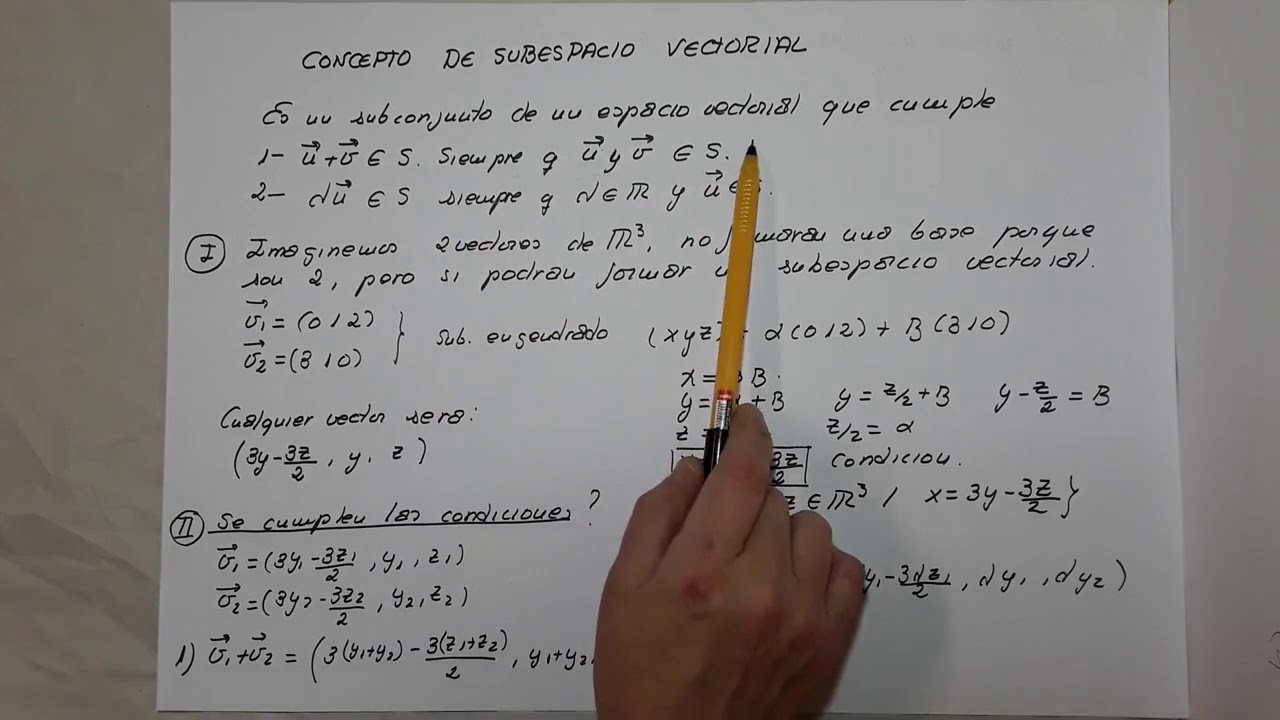 CONCEPTO DE SUBESPACIO VECTORIAL
Es un subconjunto de un espacio vectorial que cumple
1- u⃗+v⃗ ∈ S. Siempre q u⃗ y v⃗ ∈ S.
2- αu⃗ ∈ S siempre q α ∈ ℝ y u⃗ ∈ S.
I Imaginemos 2 vectores de ℝ³, no formaran una base porque
son 2, pero si podran formar un subespacio vectorial.
v⃗₁ = (0 1 2) } sub. engendrado (x y z) = α(0 1 2) + B(3 1 0)
v⃗₂ = (3 1 0)
x = 3B.
y = + B y = z/2 + B y - z/2 = B
z z/2 = α
3z/2 condicion.
z ∈ ℝ³ / x = 3y - 3z/2 }
Cualquier vector sera:
(3y - 3z/2, y, z)
II Se cumplen las condiciones?
v⃗₁ = (3y₁ - 3z₁/2, y₁, z₁)
v⃗₂ = (3y₂ - 3z₂/2, y₂, z₂)
y₁ - 3αz₁/2, αy₁, αy₂)
1) v⃗₁+v⃗₂ = (3(y₁+y₂) - 3(z₁+z₂)/2, y₁+y₂